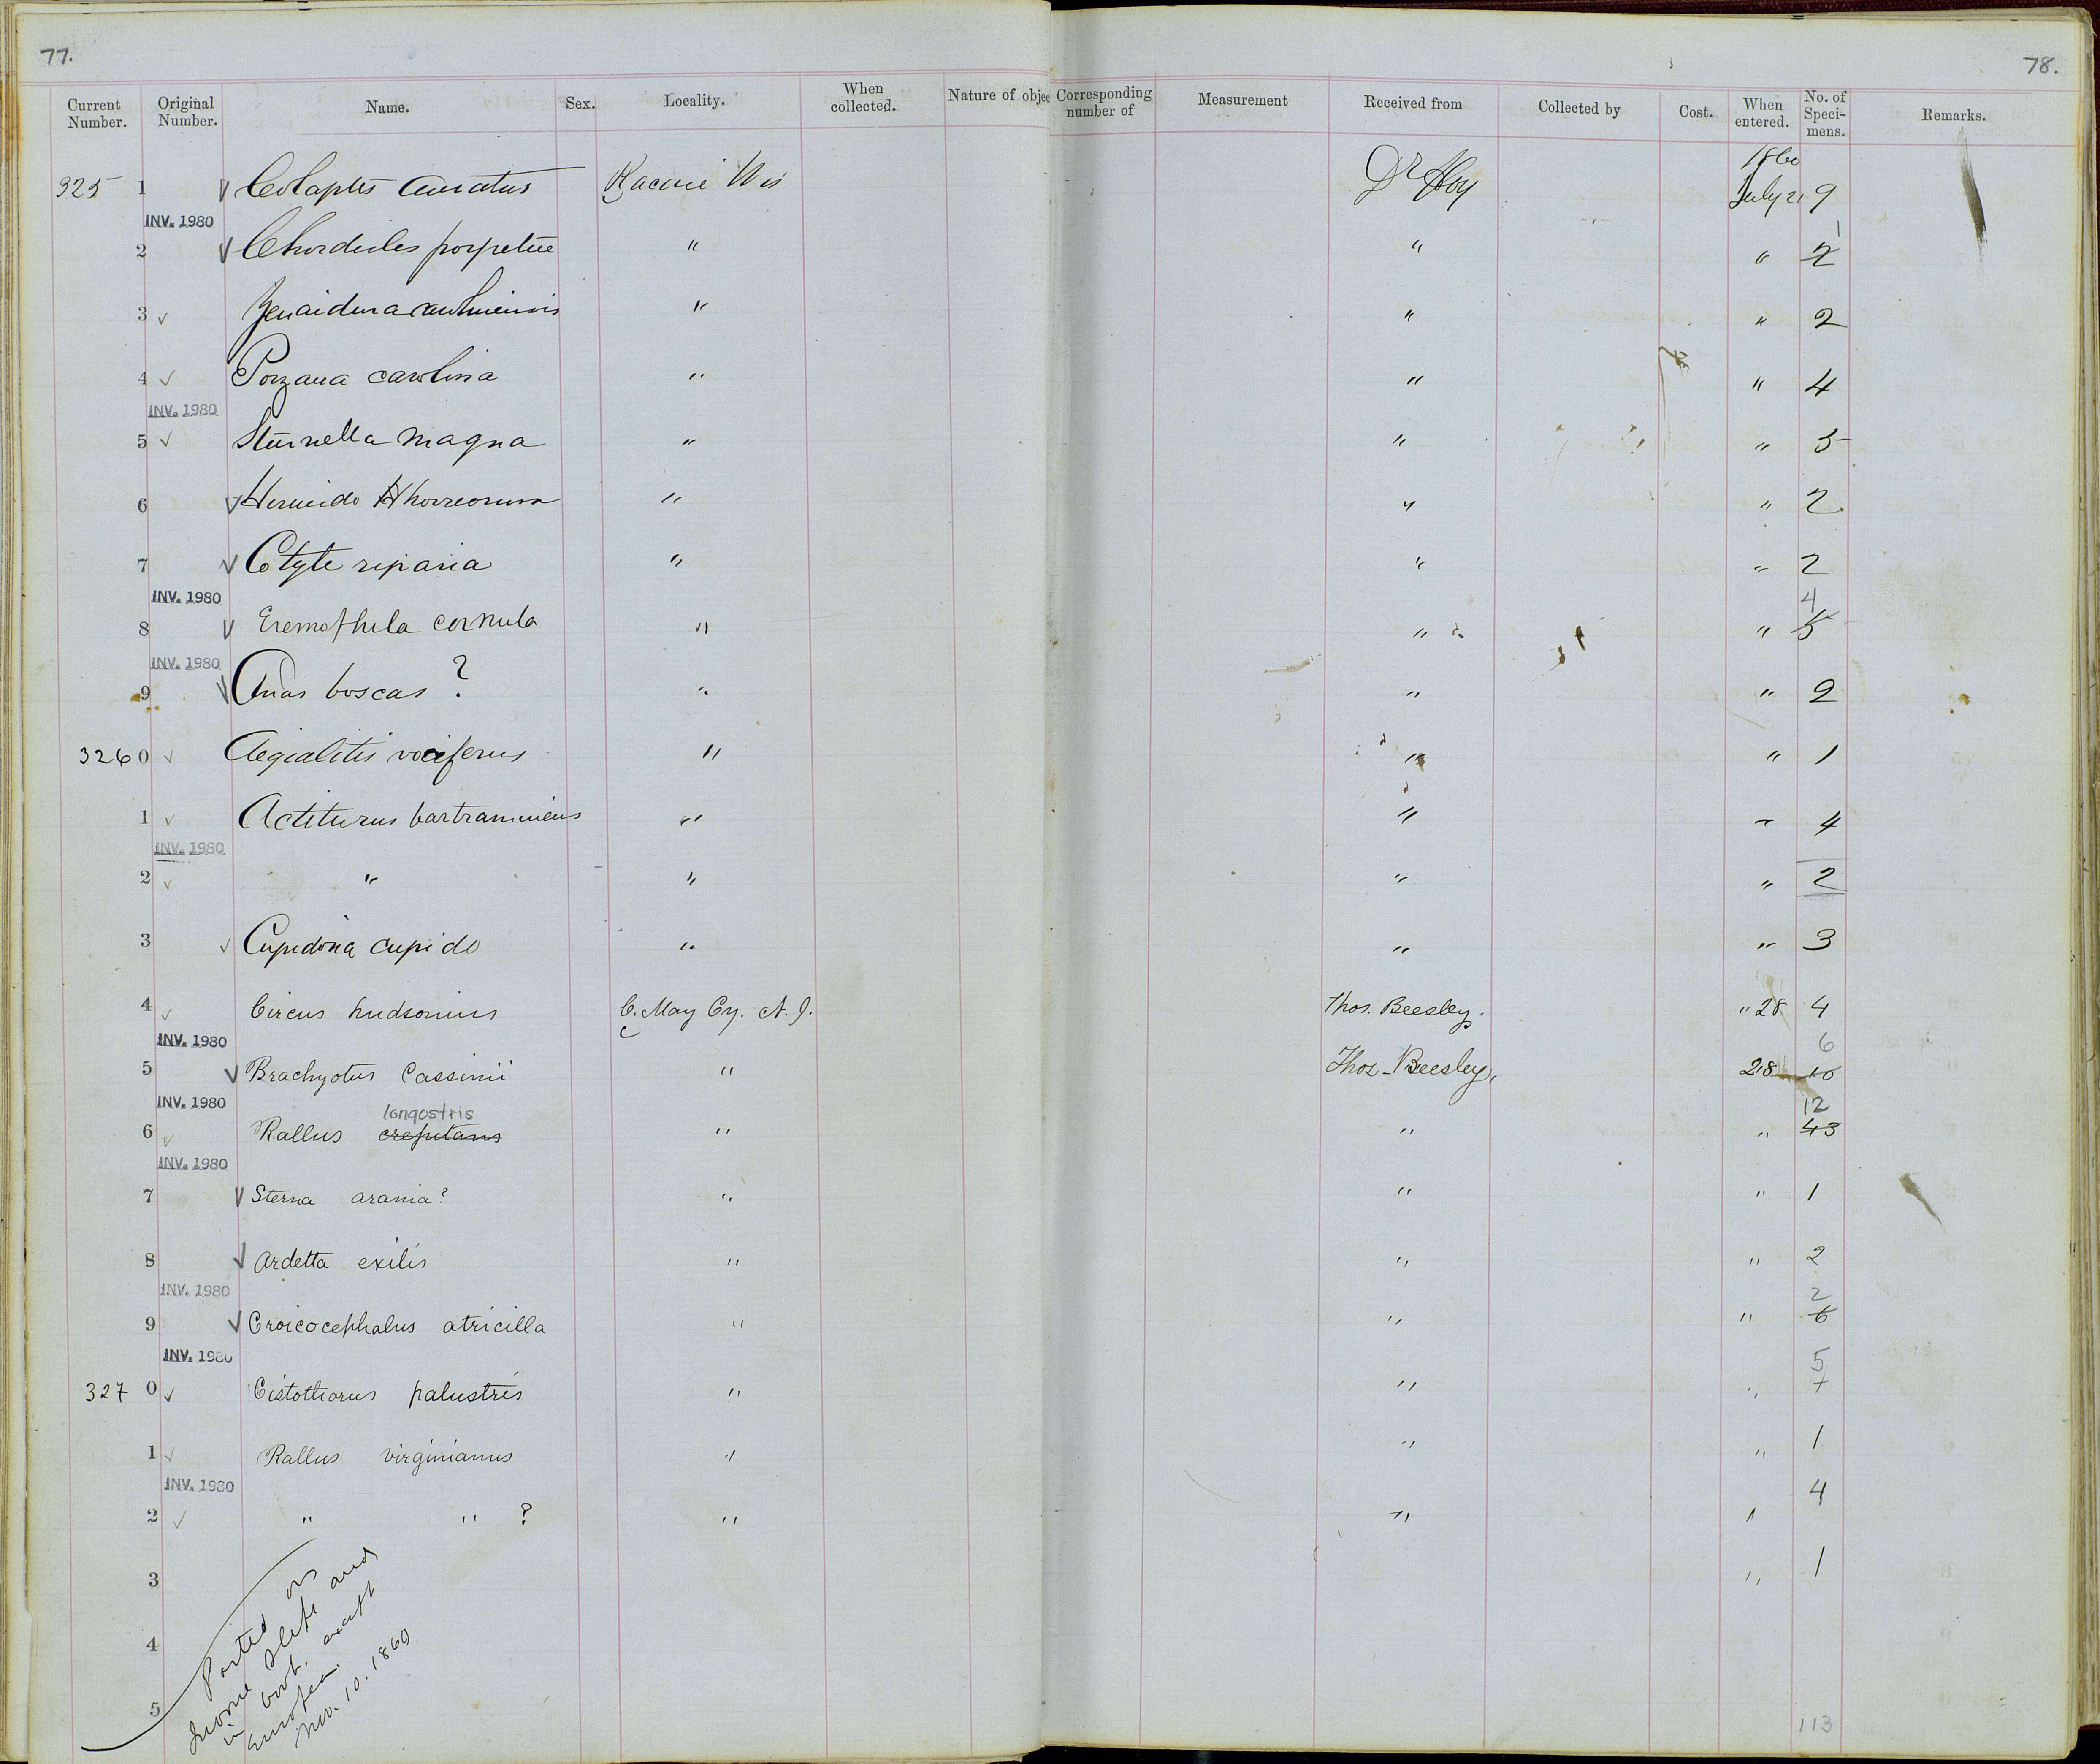 77.
78.
Current Number. Original Number. Name. Sex. Locality. When collected. Nature of objec Corresponding number of Measurement Received from Collected by Cost. When entered. No. of Speci-mens. Remarks.
1860
325 1 √ Colaptes auratus Racine Wis Dr Hoy July 21 9
INV. 1980
1
2 √ Chordeiles popetue " " " 2
3 √ Zenaidura carolinensis " " " 2
4 √ Porzana carolina " " " 4
INV. 1980
5 √ Sturnella magna " " " 5
6 √ Hirundo horreorum " " " 2
7 √ Cotyle riparia " " " 2
INV. 1980
4
8 √ Eremophila cornuta " " " 5
INV. 1980
9 √ Anas boscas ? " " " 2
326 0 √ Aegialitis vociferus " " " 1
1 √ Actiturus bartramius " " " 4
INV. 1980
2 √ " " " " 2
3 √ Cupidonia cupido " " " 3
4 √ Circus hudsonius C. May Cy. N. J. Thos. Beesley. " 28 4
INV. 1980
6
5 √ Brachyotus Cassinii " Thos. Beesley, 28 10
INV. 1980
longostris 12
6 √ Rallus crepitans " " " 43
INV. 1980
7 √ Sterna arania? " " " 1
8 √ Ardetta exilis " " " 2
INV. 1980
2
9 √ Croicocephalus atricilla " " " 6
INV. 1980
5
327 0 √ Cistothorus palustris " " " 7
1 √ Rallus virginianus " " " 1
INV. 1980
4
2 √ " " ? " " "
3 " 1
4
5
Posted on
loose slips and
in book, except
European.
Nov. 10. 1860
113